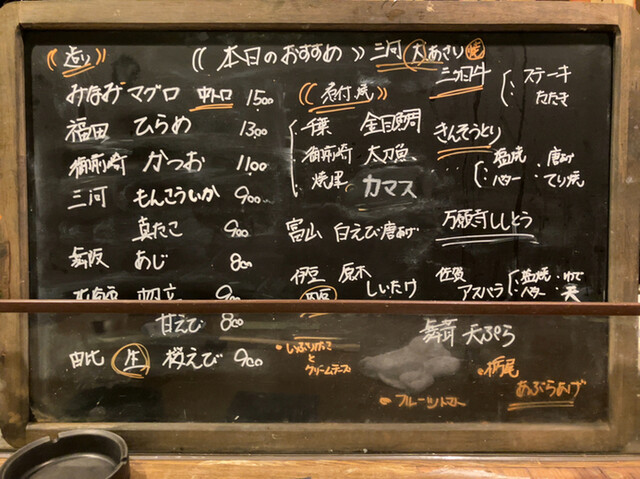 造り
《本日のおすすめ》三河 大あさり 焼
みなみマグロ 中トロ 1500
福田 ひらめ 1300
御前崎 かつお 1100
三河 もんこういか 900
真たこ 900
舞阪 あじ 800
北海道 帆立 900
甘えび 800
由比 生 桜えび 900
《炙付焼》
千葉 金目鯛
御前崎 太刀魚
焼津 カマス
富山 白えび唐あげ
伊豆 原木
しいたけ
いぶりがっこ
と
クリームチーズ
フルーツトマト
三河牛
ステーキ
たたき
きんそうとり
塩焼 唐あげ
バター てり焼
万願寺ししとう
佐賀
アスパラ
塩焼・ゆで
バター 天
舞茸 天ぷら
栃尾
あぶらあげ